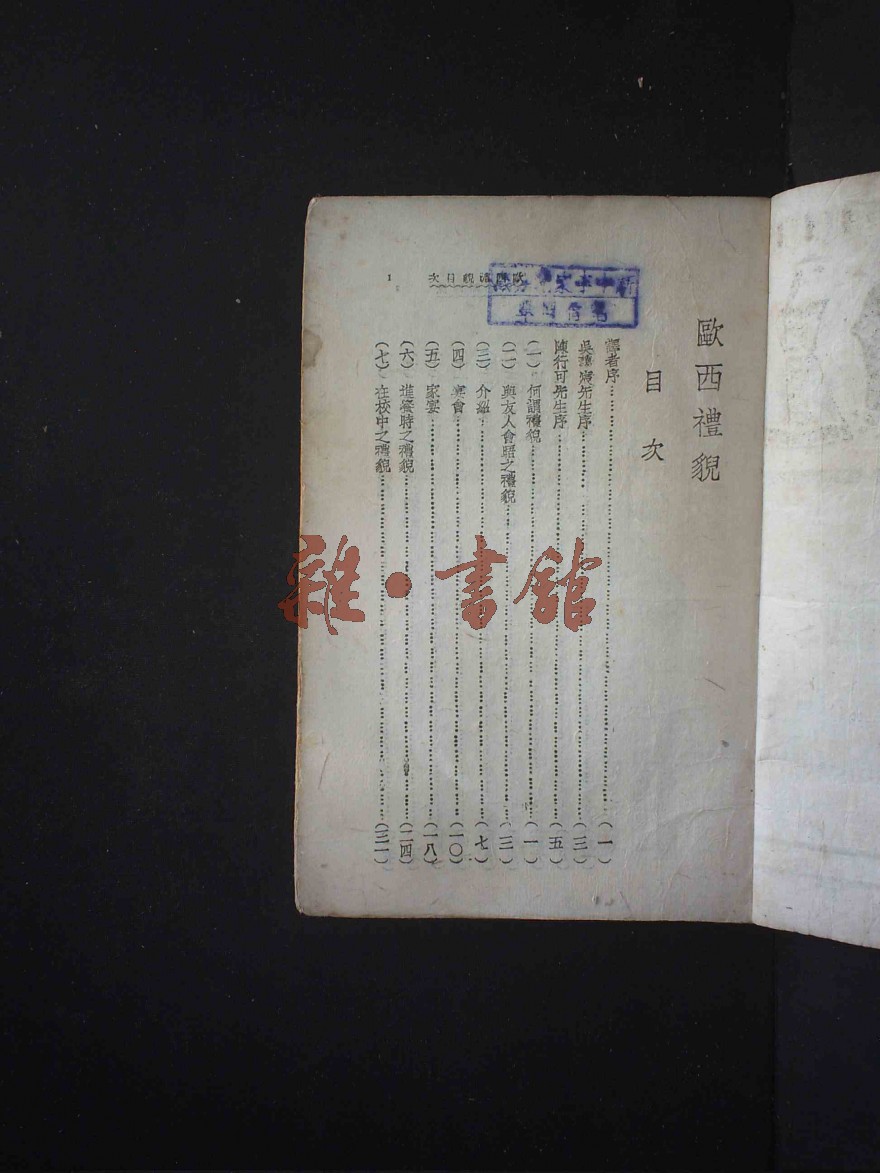 歐西禮貌
目次
譯者序……(一)
先生序……(三)
陳行可先生序……(五)
(一) 何謂禮貌……(一)
(二) 與友人會晤之禮貌……(三)
(三) 介紹……(七)
(四) 宴會……(一〇)
(五) 家宴……(一八)
(六) 進餐時之禮貌……(二四)
(七) 在校中之禮貌……(三一)
歐西禮貌目次 1
雜·書館